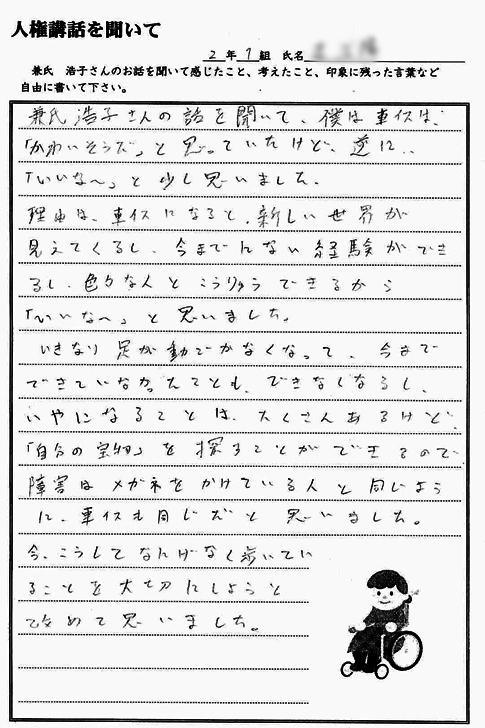 人権講話を聞いて
2年7組 氏名
兼氏 浩子さんのお話を聞いて感じたこと、考えたこと、印象に残った言葉など
自由に書いて下さい。
兼氏浩子さんの話を聞いて、僕は車イスは、
「かわいそうだ」と思っていたけど、逆に、
「いいな〜」と少し思いました。
理由は、車イスになると、新しい世界が
見えてくるし、今までにない経験ができ
るし、色々な人とこうりゅうできるから
「いいな〜」と思いました。
いきなり足が動でかなくなって、今まで
できていなかったことも、できなくなるし、
いやになることは、たくさんあるけど、
「自分の宝物」を探すことができるので
障害はメガネをかけている人と同じよう
に、車イスも同じだと思いました。
今、こうしてなにげなく歩いてい
ることを大切にしようと
改めて思いました。